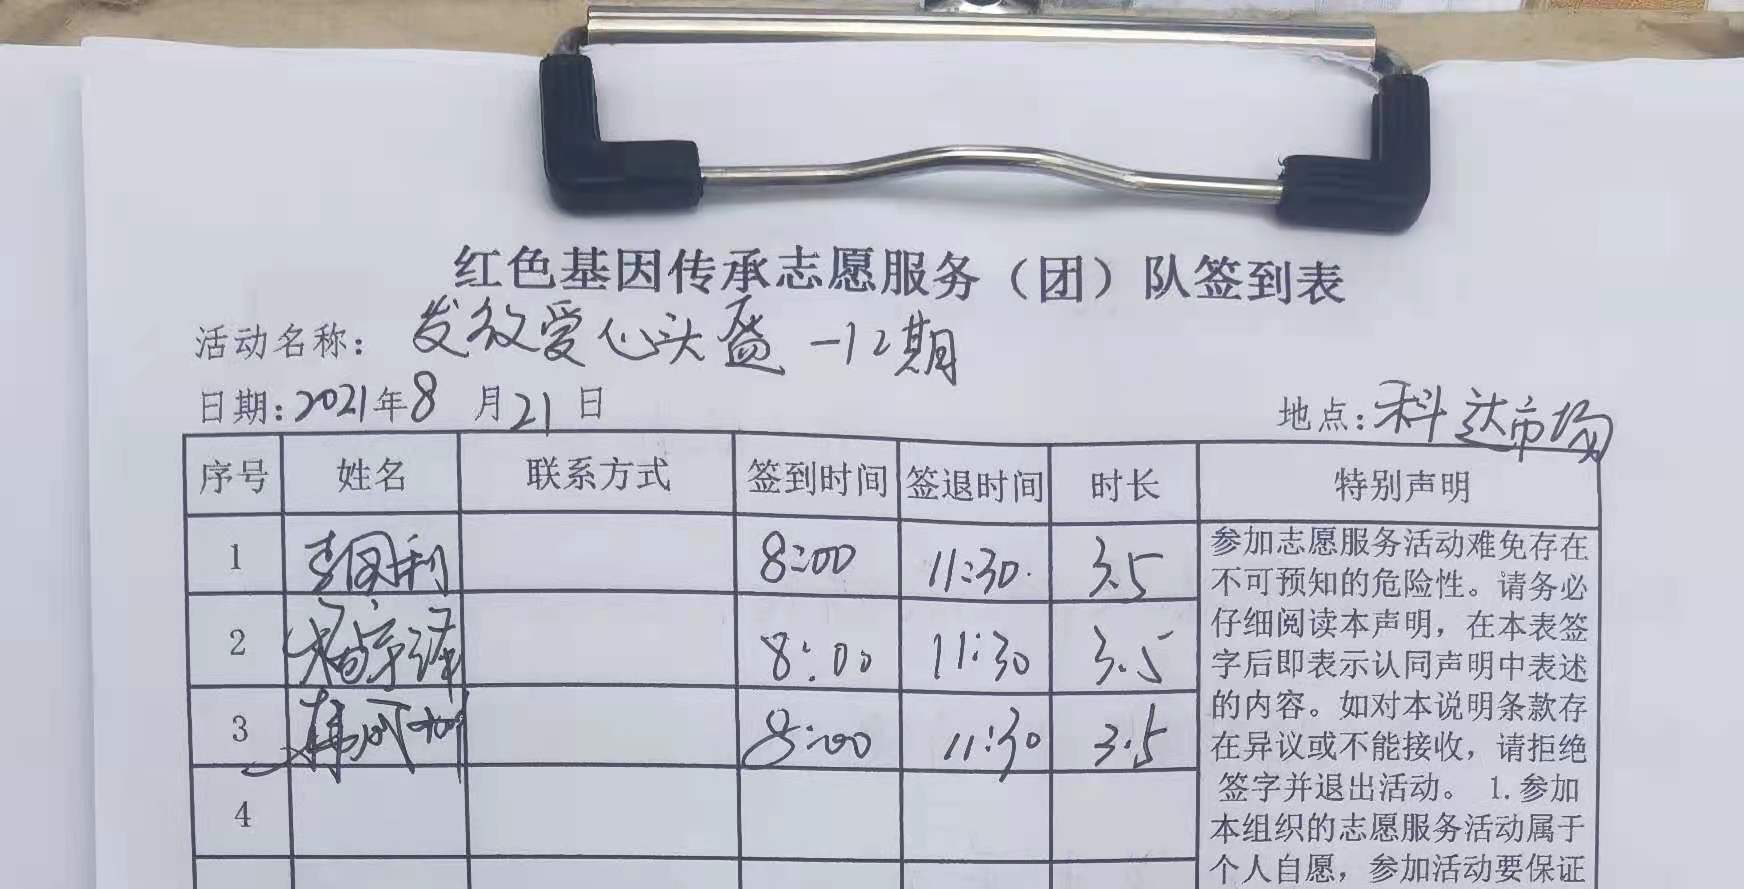 红色基因传承志愿服务（团）队签到表
活动名称：发放爱心头盔-12期
日期:2021年8月21日 地点:科达市场
序号 姓名 联系方式 签到时间 签退时间 时长 特别声明
1 8:00 11:30 3.5
2 8:00 11:30 3.5
3 8:00 11:30 3.5
4
参加志愿服务活动难免存在
不可预知的危险性。请务必
仔细阅读本声明，在本表签
字后即表示认同声明中表述
的内容。如对本说明条款存
在异议或不能接收，请拒绝
签字并退出活动。 1.参加
本组织的志愿服务活动属于
个人自愿，参加活动要保证